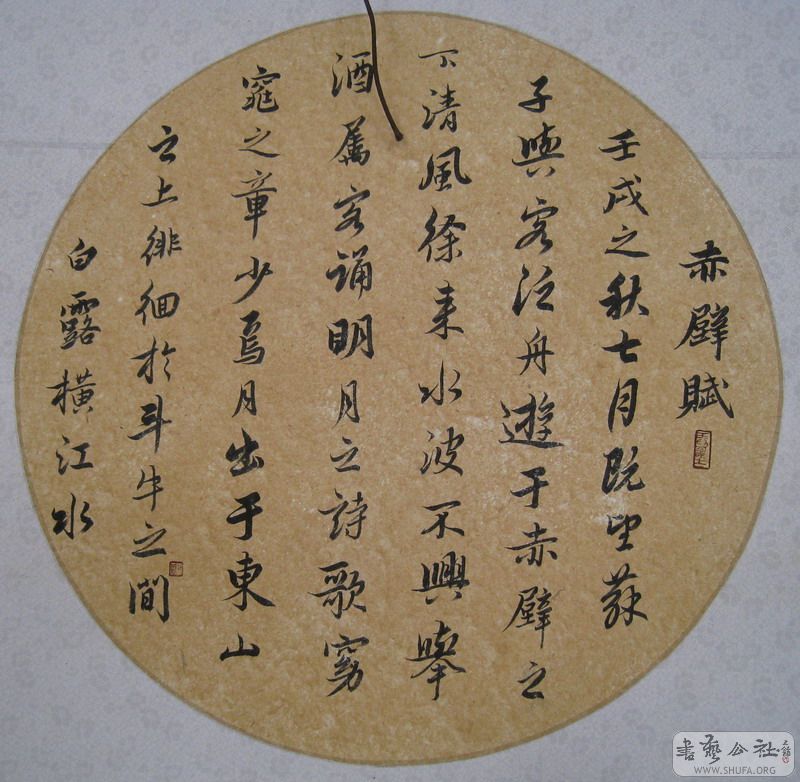 赤壁賦
壬戌之秋七月既望蘇
子與客泛舟遊于赤壁之
下清風徐来水波不興舉
酒属客誦明月之詩歌窈
窕之章少焉月出于東山
之上徘徊於斗牛之間
白露横江水
書藝公社
WWW.SHUFA.ORG